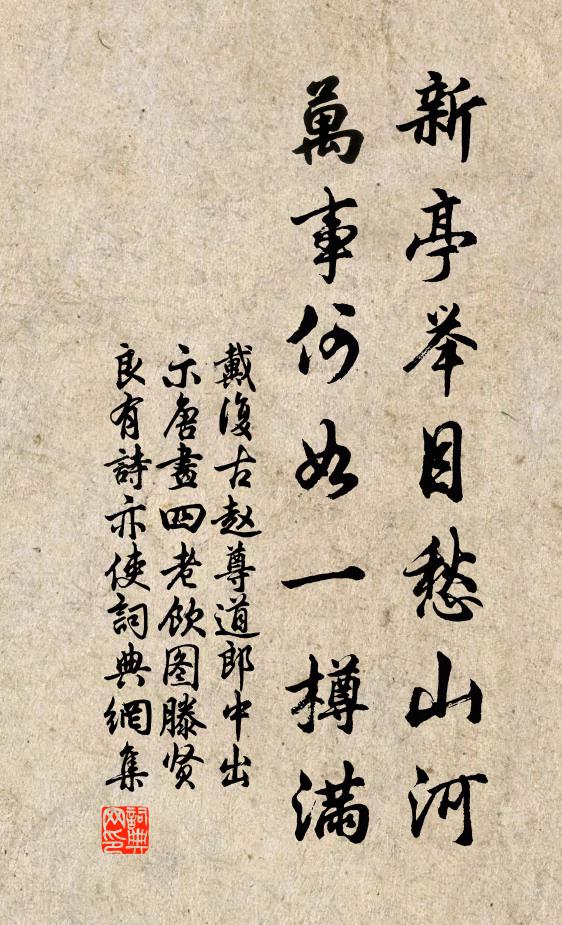 新亭举目愁山河
萬事何如一樽满
戴復古赵尊道郎中出
示唐畫四老飲图滕贤
良有詩亦使詞典網集
詞典
网印